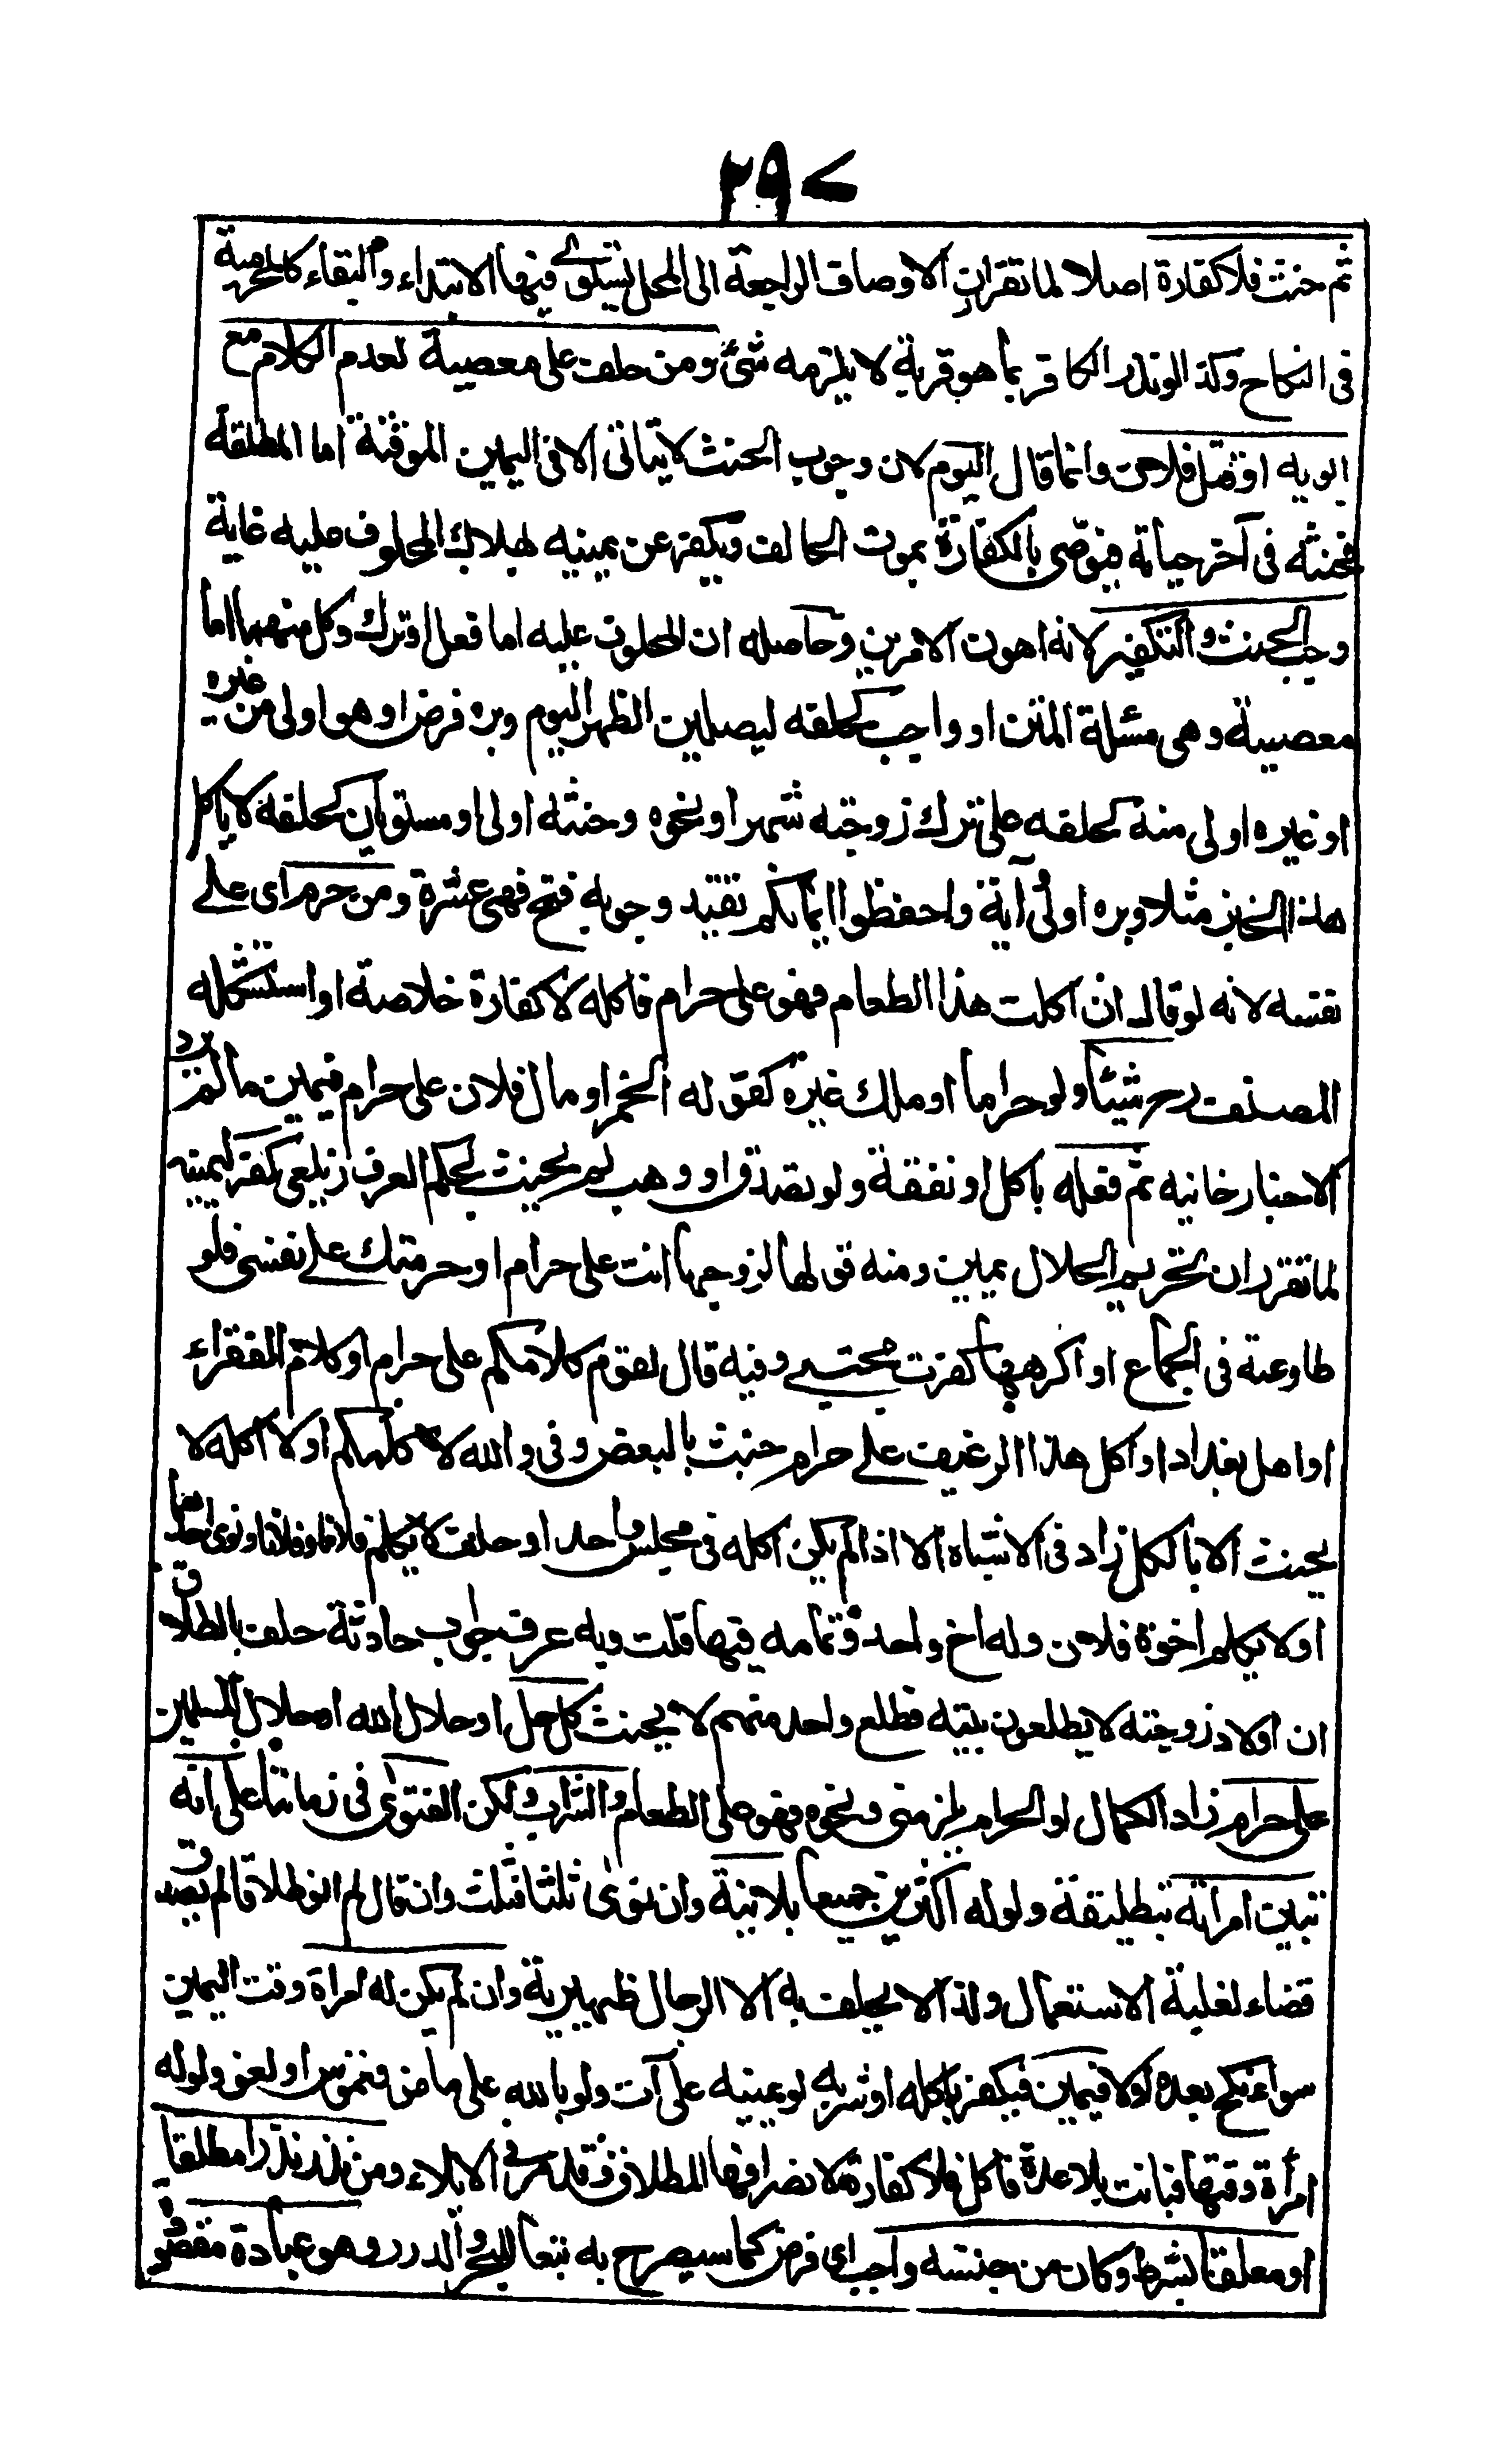 ٢٩٧
ثم حنث فلا كفارة اصلا لما تقرر ان الاوصاف الراجعة الى المحل يستوى فيها الابتداء والبقاء كالمحرمية
فى النكاح وكذا لو نذر الكافر بما هو قربة لا يلزمه شئ ومن حلف على معصية لعدم الكلام مع
ابويه او قتل فلان وانما قال اليوم لان وجوب الحنث لا يتأتى الا فى اليمين الموقتة اما المطلقة
فحنثه فى آخر حياته فيوصى بالكفارة بموت الحالف ويكفر عن يمينه بهلاك المحلوف عليه غاية
وجب الحنث والتكفير لانه اهون الامرين وحاصله ان المحلوف عليه اما فعل او ترك وكل منهما اما
معصية وهى مسئلة المتن او واجب كحلفه ليصلين الظهر اليوم وبره فرض او هو اولى من غيره
او غيره اولى منه كحلفه على ترك زوجته شهرا ونحوه وحنثه اولى او مستويان كحلفه لا ياكل
هذا الخبز مثلا وبره اولى آية واحفظوا ايمانكم تفيد وجوبه فتح فهى عشرة ومن حرم اى على
نفسه لانه لو قال ان اكلت هذا الطعام فهو على حرام فاكله لا كفارة خلاصة او استشكله
المصنف رح شيئا ولو حراما او ملك غيره كقوله الخمر او مال فلان على حرام فيمين ما لم يرد
الاخبار خانيه ثم فعله باكل او نفقة ولو تصدق او وهب لم يحنث لحكم العرف زيلعى كفر ليمينه
لما تقرر ان تحريم الحلال يمين ومنه قولها لزوجها انت على حرام او حرمتك على نفسى فلو
طاوعته فى الجماع او اكرهها كفرت مجتبى وفيه قال لقوم كلامكم على حرام او كلام الفقراء
او اهل بغداد او اكل هذا الرغيف على حرام حنث بالبعض وفى والله لا اكلمكم او لا آكله لا
يحنث الا بالكل زاد فى الاشباه الا اذا لم يكن اكله فى مجلس واحد او حلف لا يكلم فلانا وفلانا ونوى احدهما
او لا يكلم اخوة فلان وله اخ واحد وتمامه فيها قلت وبه عرف جواب حادثة حلف بالطلاق
ان اولاد زوجته لا يطلعون بيته فطلع واحد منهم لا يحنث كل حل او حلال الله او حلال المسلمين
على حرام زاد الكمال او الحرام يلزمنى ونحوه فهو على الطعام والشراب ولكن الفتوى فى زماننا على انه
تبين امراته بتطليقة ولو له اكثر بن جميعا بلا نية وان نوى ثلثا فثلث وان قال لم انو طلاقا لم يصدق
قضاء لغلبة الاستعمال ولذا لا يحلف به الا الرجال ظهيرية وان لم يكن له امراة وقت اليمين
سواء نكح بعده او لا فيمين فيكفر باكله او شربه لو يمينه على آت ولو بالله على ماض فغموس او لغو ولو له
امرأة وقتها فبانت بلا عدة فاكل فلا كفارة لانصرافها للطلاق وقد مر فى الايلاء ومن نذر نذرا مطلقا
او معلقا بشرط وكان من جنسه واجب اى فرض كما سيصرح به تبعا للبحر والدرر وهو عبادة مقصودة